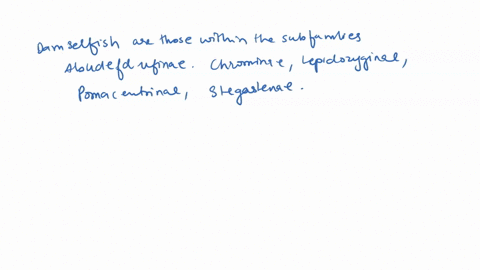 Damselfish are those within the subfamilies
Abudefdufinae. Chrominae, Lepidozyginae,
Pomacentrinae, Stegastenae.